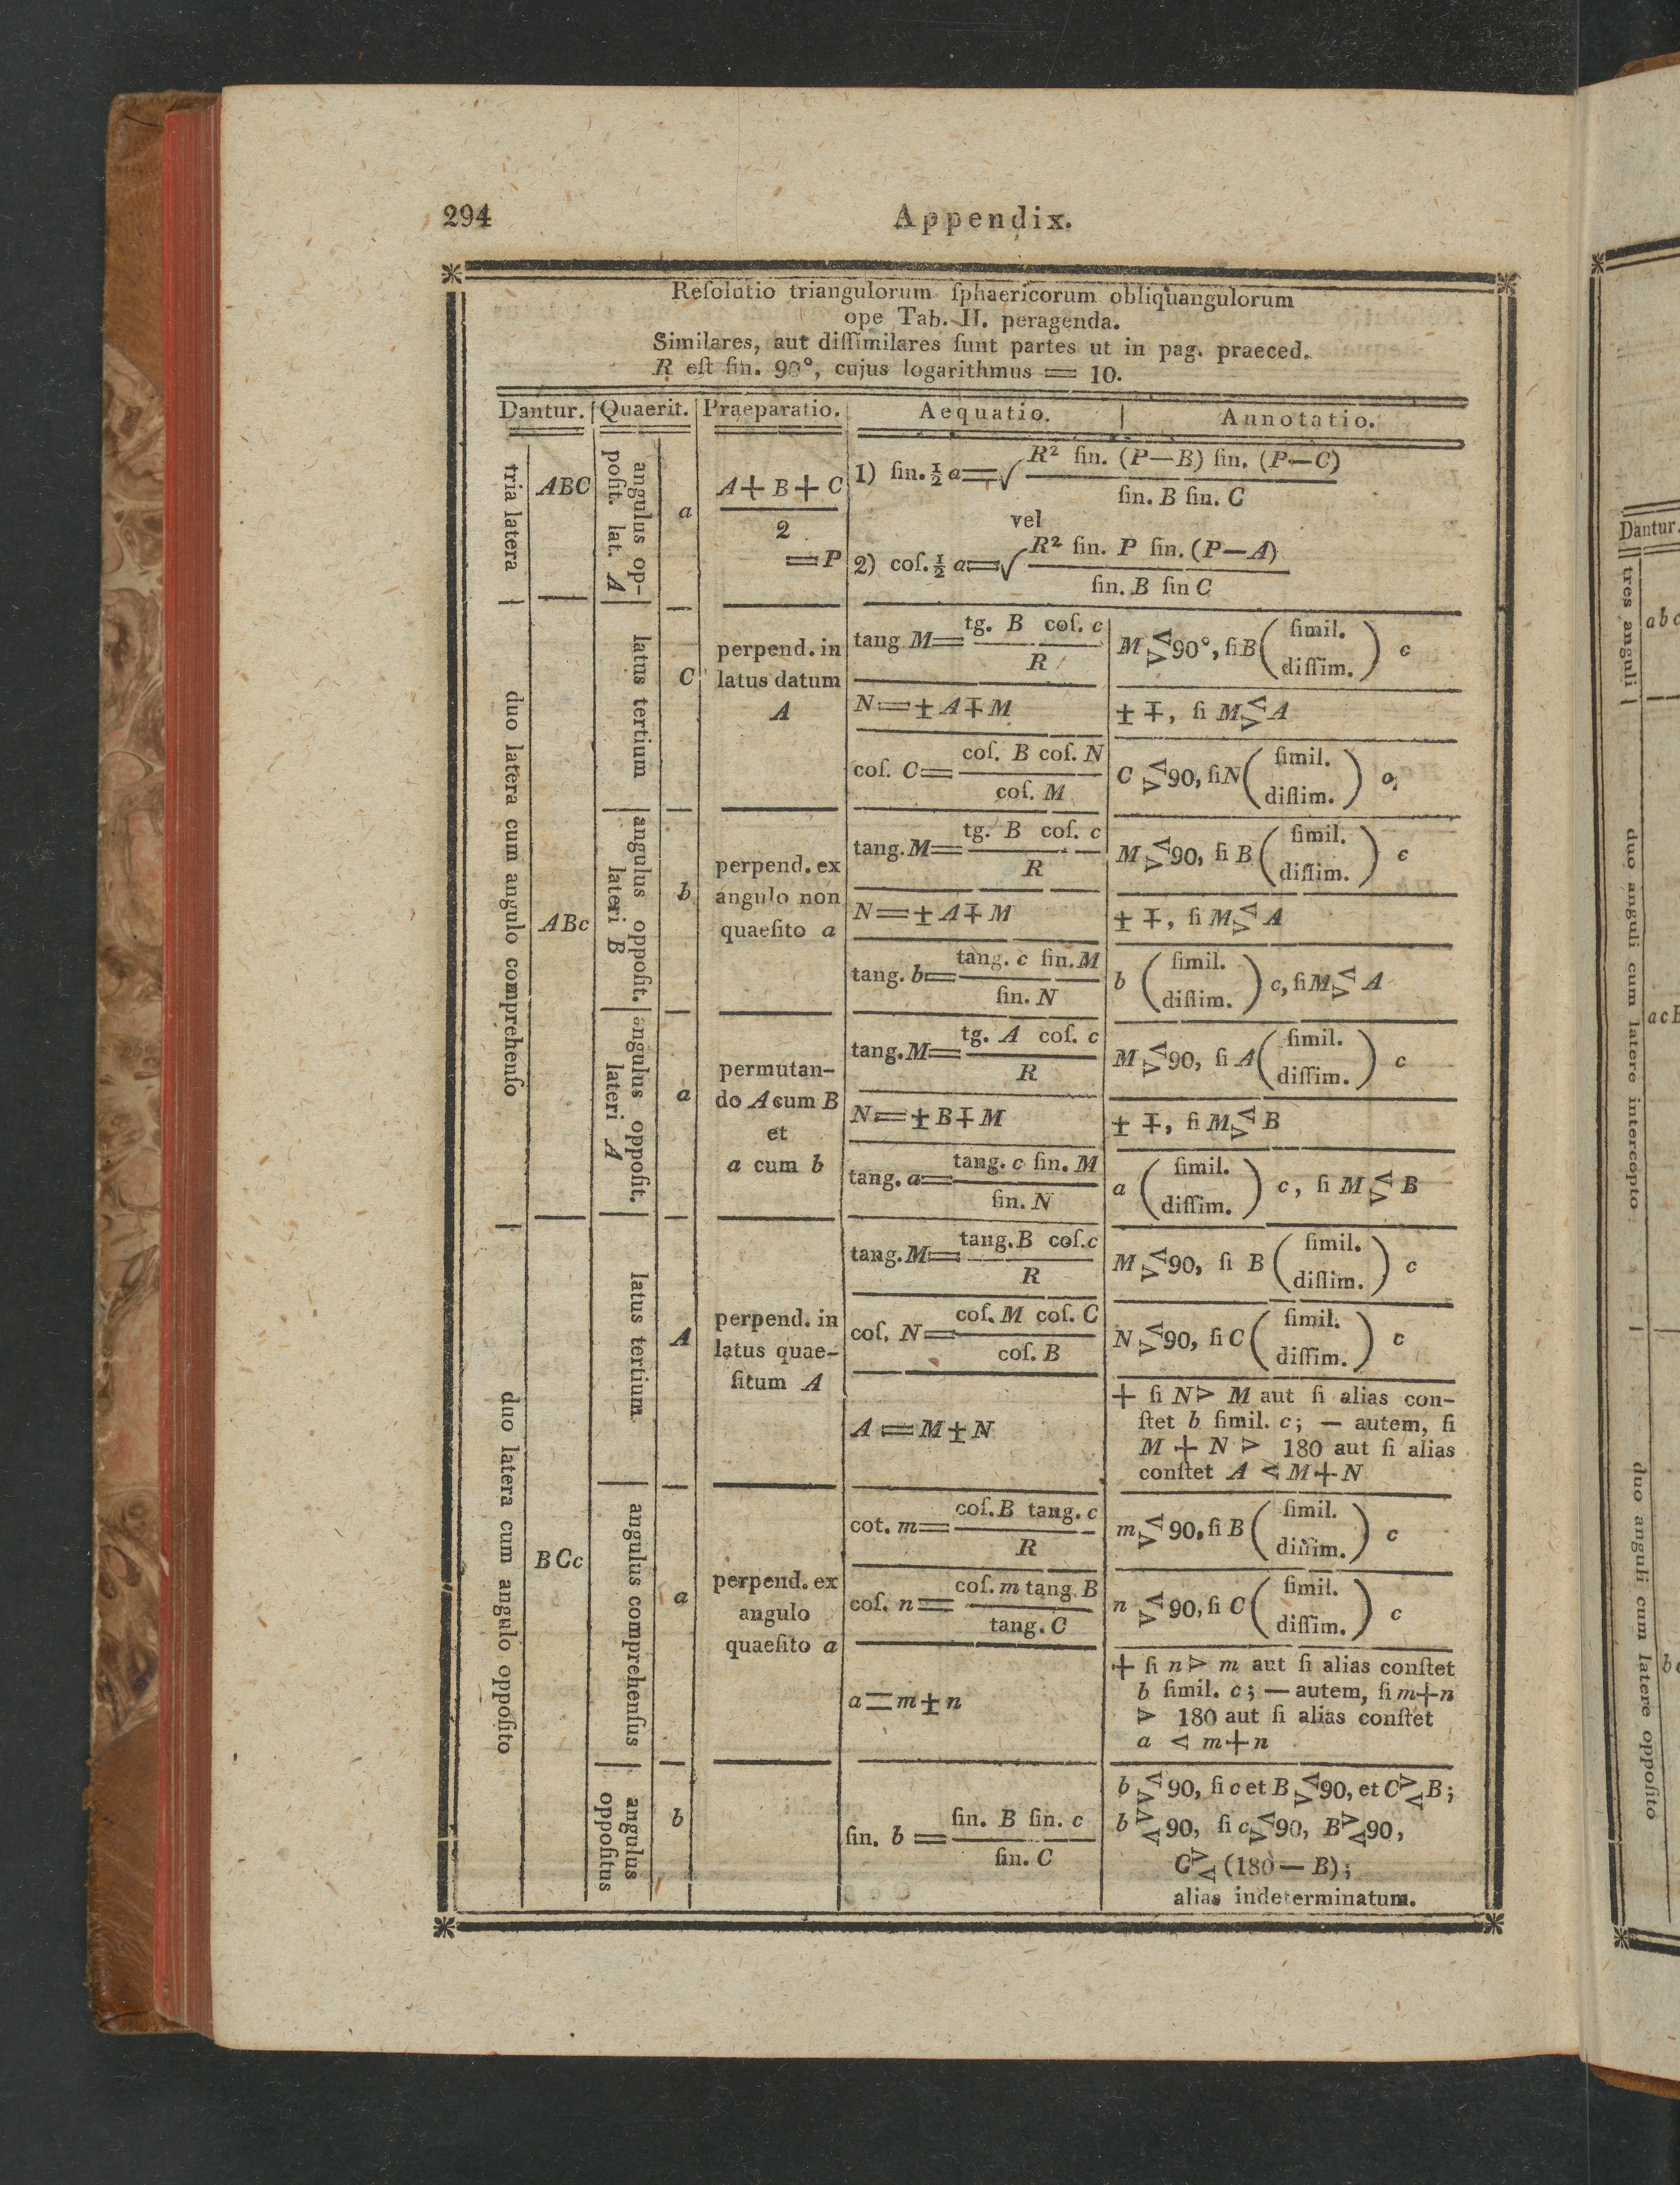 294
Appendix.
Reſolutio triangulorum ſphaericorum obliquangulorum
ope Tab. II. peragenda.
Similares, aut diſſimilares ſunt partes ut in pag. praeced.
R eſt ſin. 90°, cujus logarithmus = 10.
Dantur. | Quaerit. | Praeparatio. | Aequatio. | Annotatio.
tria latera
ABC
angulus op-
poſit. lat. A
a
A + B + C
2
= P
1) ſin. ½ a = √ R² ſin. (P—B) ſin. (P—C)
ſin. B ſin. C
vel
2) coſ. ½ a = √ R² ſin. P ſin. (P—A)
ſin. B ſin C
duo latera cum angulo comprehenſo
ABc
latus tertium
C
perpend. in
latus datum
A
tang M = tg. B coſ. c
R
M <> 90°, ſi B ( ſimil.
diſſim. ) c
N = ± A ∓ M
± ∓, ſi M <> A
coſ. C = coſ. B coſ. N
coſ. M
C <> 90, ſi N ( ſimil.
diſſim. ) c
angulus oppoſit.
lateri B
b
perpend. ex
angulo non
quaeſito a
tang. M = tg. B coſ. c
R
M <> 90, ſi B ( ſimil.
diſſim. ) c
N = ± A ∓ M
± ∓, ſi M <> A
tang. b = tang. c ſin. M
ſin. N
b ( ſimil.
diſſim. ) c, ſi M <> A
angulus oppoſit.
lateri A
a
permutan-
do A cum B
et
a cum b
tang. M = tg. A coſ. c
R
M <> 90, ſi A ( ſimil.
diſſim. ) c
N = ± B ∓ M
± ∓, ſi M <> B
tang. a = tang. c ſin. M
ſin. N
a ( ſimil.
diſſim. ) c, ſi M <> B
duo latera cum angulo oppoſito
BCc
latus tertium
A
perpend. in
latus quae-
ſitum A
tang. M = tang. B coſ. c
R
M <> 90, ſi B ( ſimil.
diſſim. ) c
coſ. N = coſ. M coſ. C
coſ. B
N <> 90, ſi C ( ſimil.
diſſim. ) c
A = M ± N
+ ſi N > M aut ſi alias con-
ſtet b ſimil. c; — autem, ſi
M + N > 180 aut ſi alias
conſtet A < M + N
angulus comprehenſus
a
perpend. ex
angulo
quaeſito a
cot. m = coſ. B tang. c
R
m <> 90, ſi B ( ſimil.
diſſim. ) c
coſ. n = coſ. m tang. B
tang. C
n <> 90, ſi C ( ſimil.
diſſim. ) c
a = m ± n
+ ſi n > m aut ſi alias conſtet
b ſimil. c; — autem, ſi m + n
> 180 aut ſi alias conſtet
a < m + n
angulus
oppoſitus
b
ſin. b = ſin. B ſin. c
ſin. C
b <> 90, ſi c et B <> 90, et C >< B;
b >< 90, ſi c <> 90, B >< 90,
C >< (180 — B);
alias indeterminatum.
Dantur.
tres anguli
abc
duo anguli cum latere intercepto
acB
duo anguli cum latere oppoſito